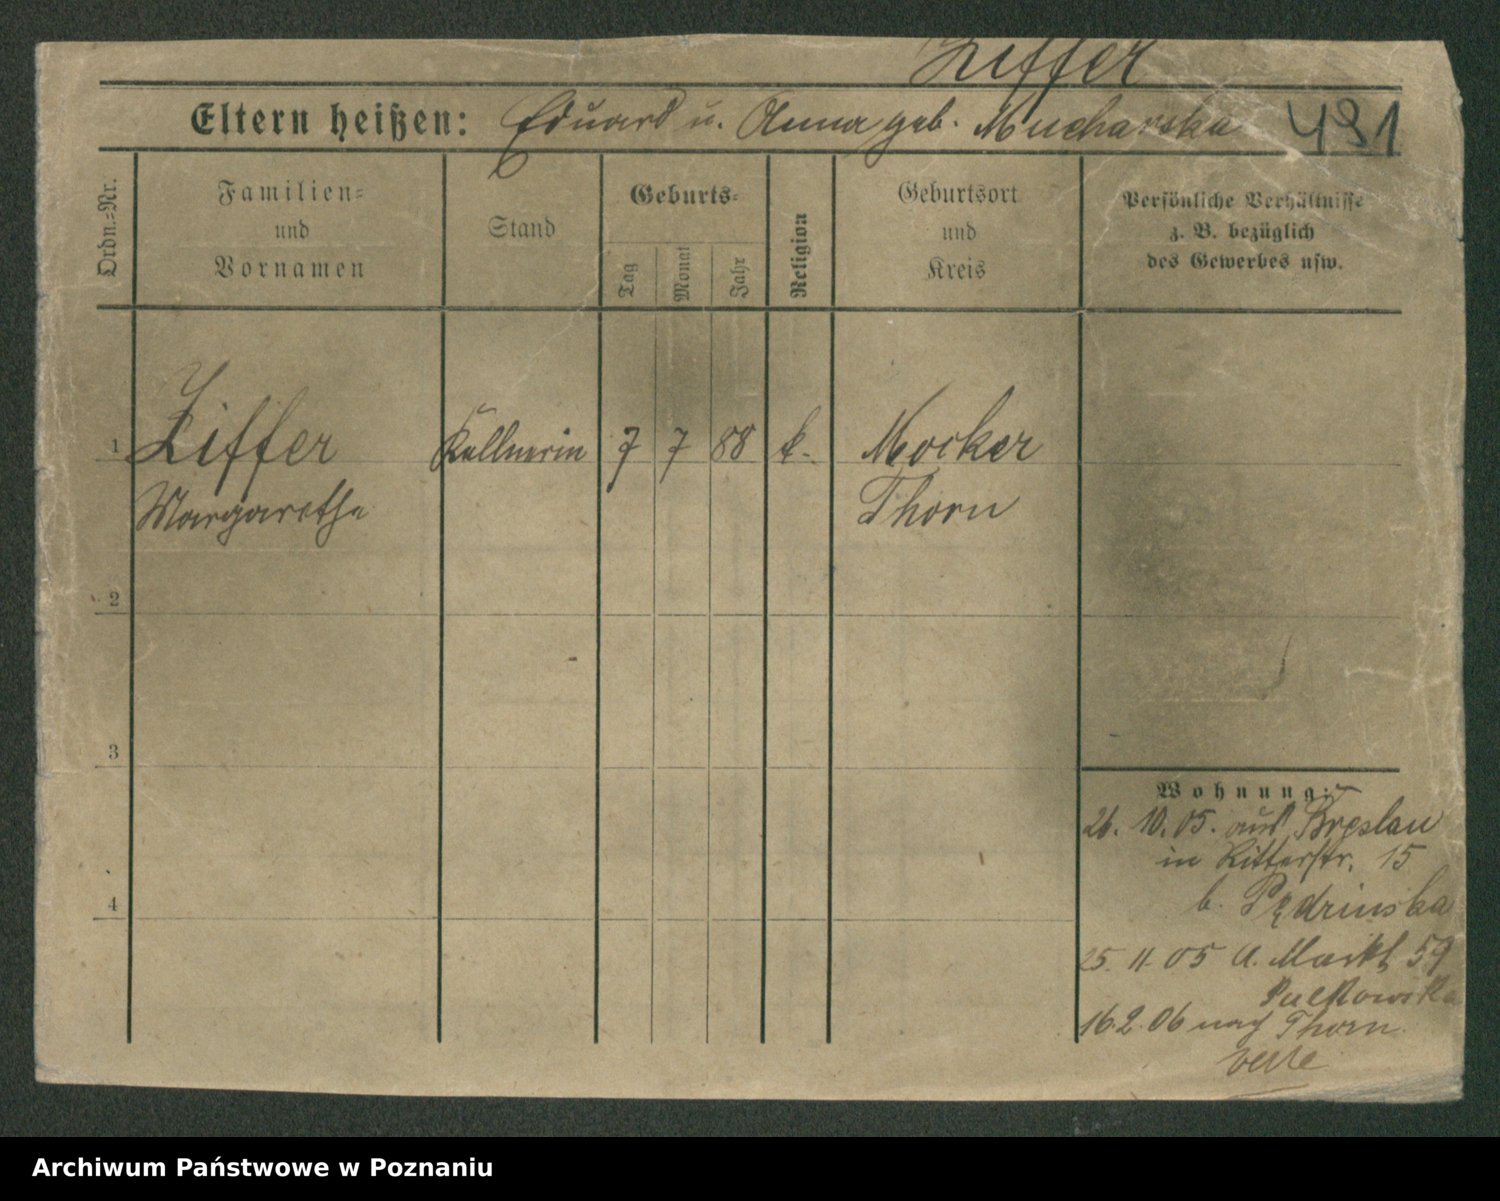 Ziffer
Eltern heißen: Eduard u. Anna geb. Mucharska 491
Ordn.=Nr.
Familien=
und
Vornamen
Stand
Geburts=
Tag
Monat
Jahr
Religion
Geburtsort
und
Kreis
Persönliche Verhältnisse
z. B. bezüglich
des Gewerbes usw.
1 Ziffer Kellnerin 7 7 88 k. Mocker
Margarethe Thorn
2
3
Wohnung:
26. 10. 05. aus Breslau
in Ritterstr. 15
b.
4
25. 11. 05 A. Markt 59
16.2.06 nach Thorn
Archiwum Państwowe w Poznaniu